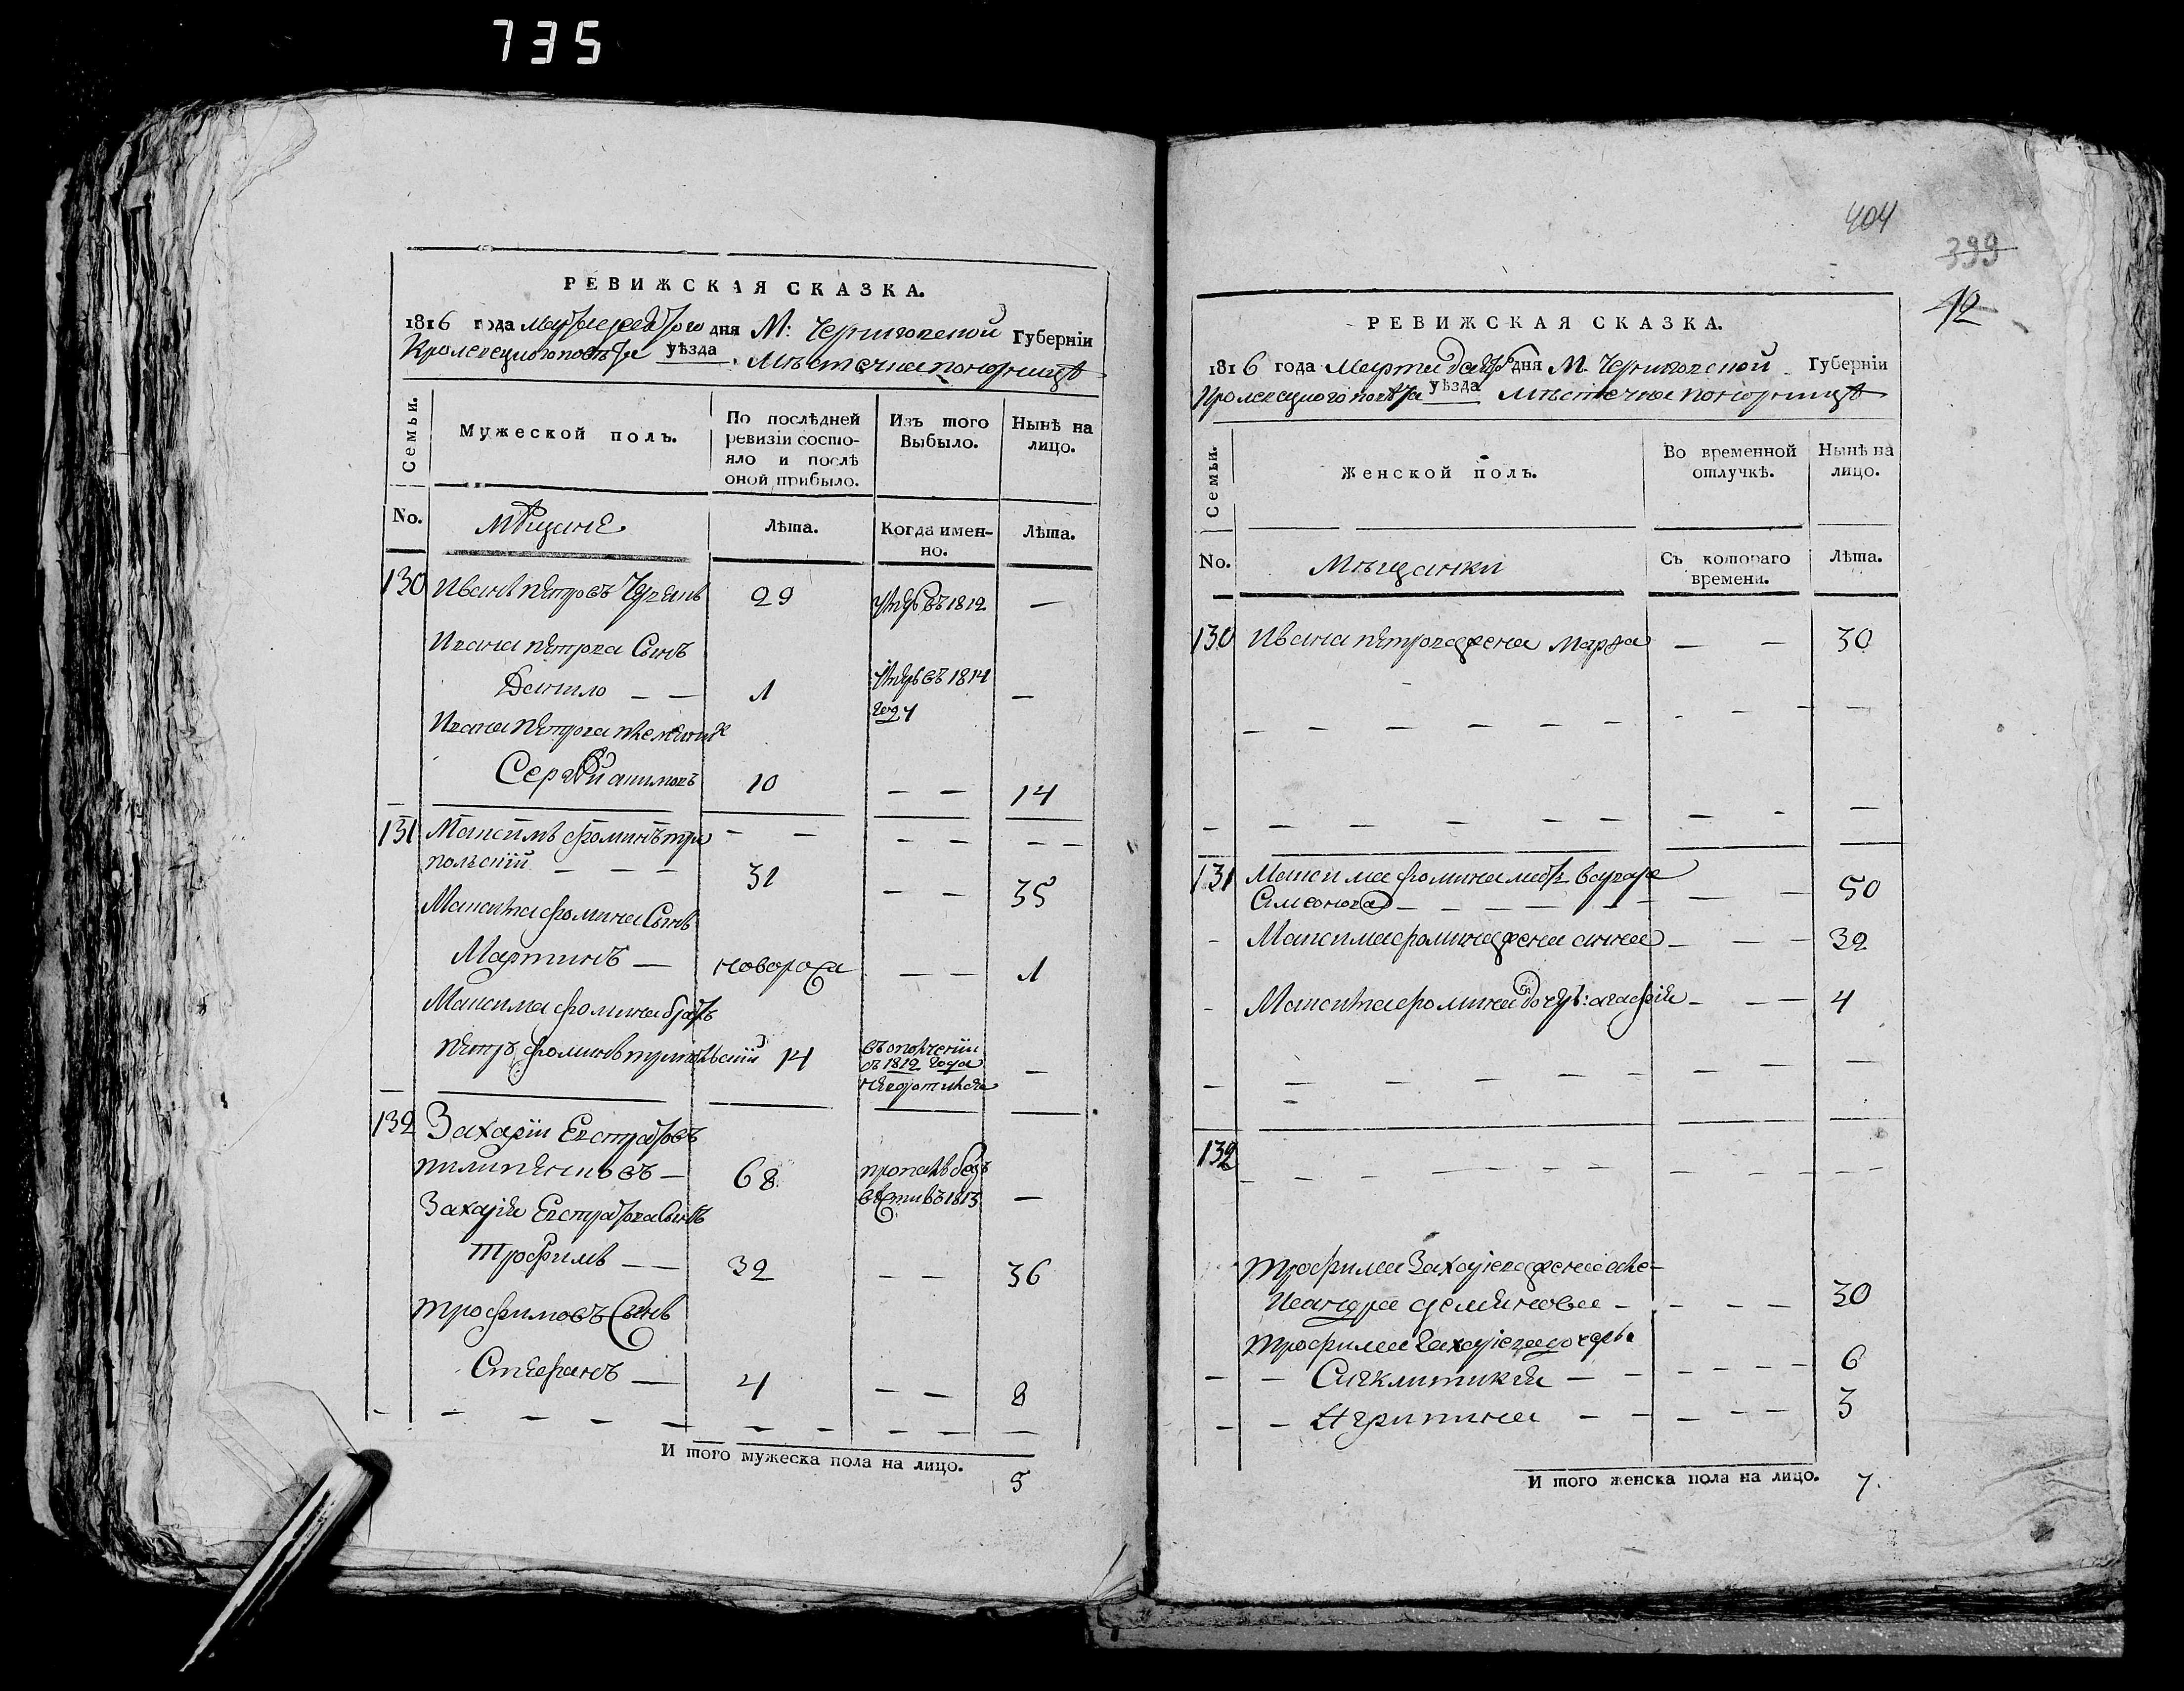 735
РЕВИЖСКАЯ СКАЗКА.
1816 года дня М: Черниговской Губерніи
Кролевецкого повѣта уѣзда Мѣстечка понорницѣ
Семьи.
Мужеской полъ.
По послѣдней ревизіи состояло и послѣ оной прибыло.
Изъ того Выбыло.
Нынѣ на лицо.
No.
мѣщане
Лѣта.
Когда именно.
Лѣта.
130 Иванъ петровъ 29 умре въ 1812 —
Ивана петрова Сынъ
Данило — — 1 умре въ 1814 году —
Ивана петрова племянник
Сергѣй акимовъ 10 — — 14
131 Максимъ фоминъ три
польский — — — 31 — — 35
Максима фомина Сынъ
Мартинъ — новорож — — 1
Максима фомина братъ
петръ фоминъ трипольский 14 въ ополчении съ 1812 года —
132 Захарiй Евстратовъ
пилипенковъ — 68 пропалъ безъ вѣсти въ 1813 —
Захарiя Евстратова Сынъ
трофимъ — — 32 — — 36
трофимовъ Сынъ
Стефанъ — 4 — — 8
И того мужеска пола на лицо. 5
404
399
42
РЕВИЖСКАЯ СКАЗКА.
1816 года Марта дня М. Черниговской Губерніи
Кролевецкого повѣта уѣзда мѣстечка понорницѣ
Семьи.
Женской полъ.
Во временной отлучкѣ.
Нынѣ на лицо.
No.
Мѣщанки
Съ котораго времени.
Лѣта.
130 Ивана петрова жена Марфа — — 30
131 Максима фомина мать варвара
Симонова — — — 50
Максима фомина жена анна — — — 32
Максима фомина дочерь: агафiя — — — 4
132
трофима Захарiева жена але-
ксандра демянова — — — — 30
трофима Захарiева дочерь
— — Синклитикiя — — — — — 6
— — Агрипина — — — — — 3
И того женска пола на лицо. 7.